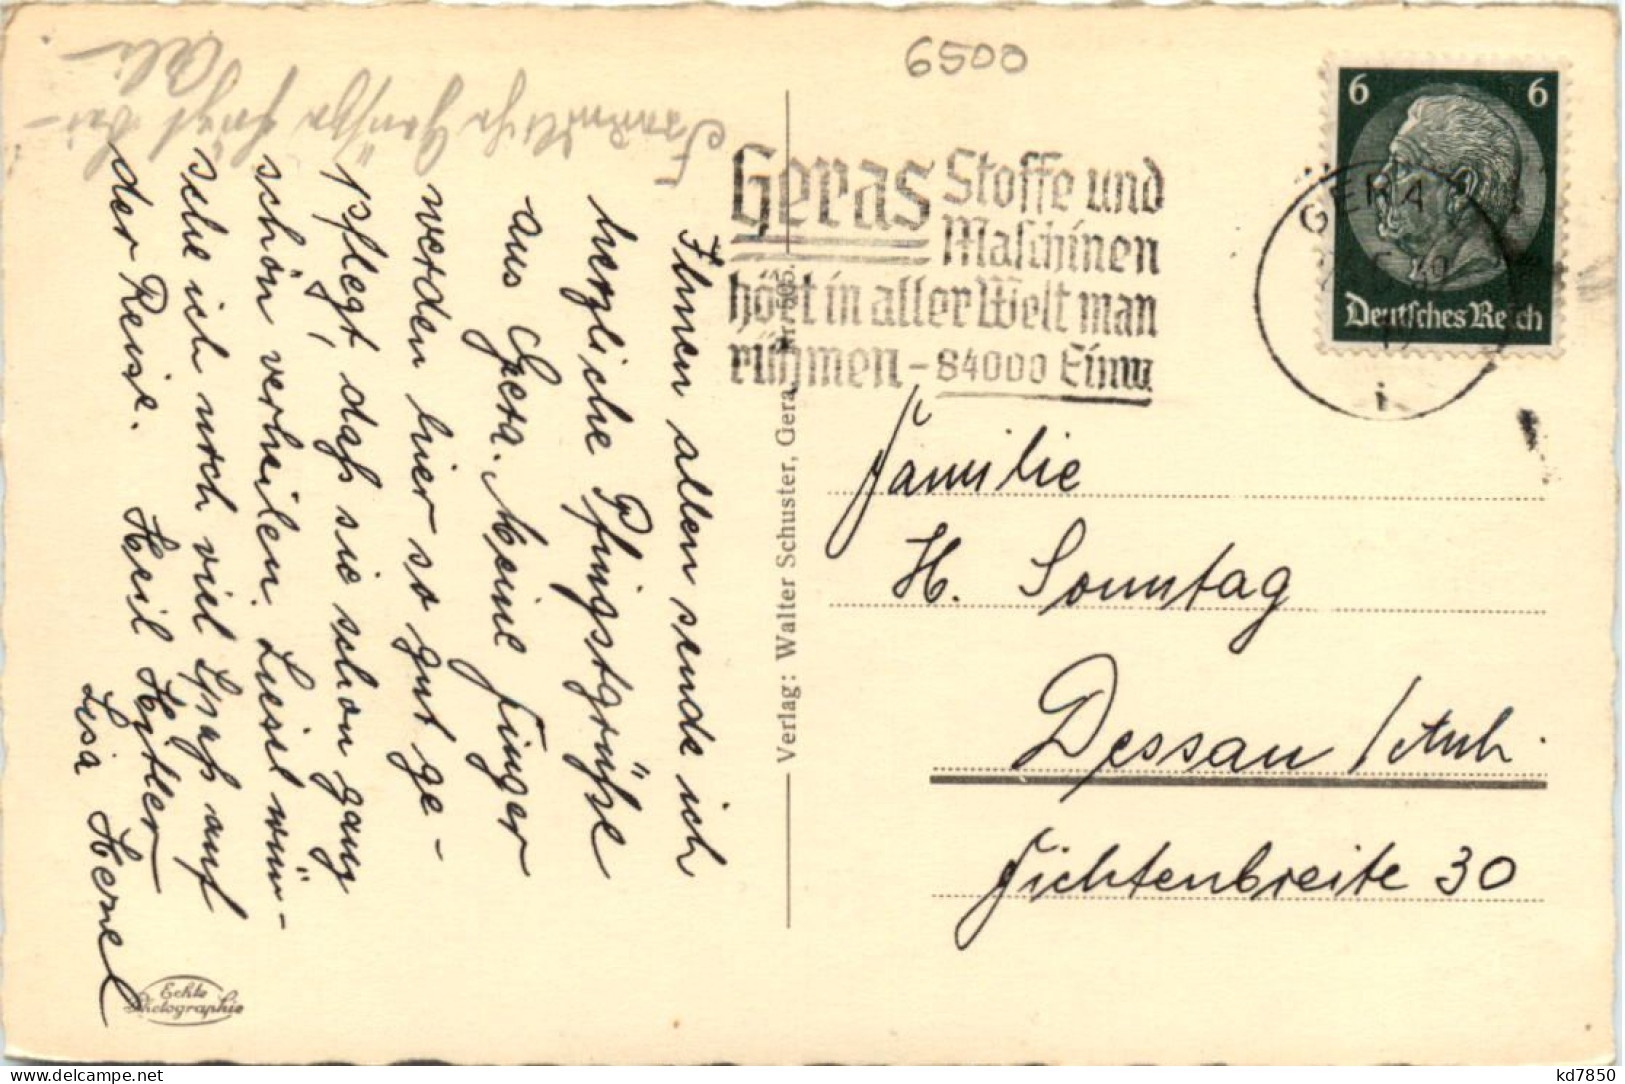 6500
6 6
Deutsches Reich
GERA
i
Geras Stoffe und
Maschinen
hört in aller Welt man
rühmen - 84000 Einw.
Familie
H. Sonntag
Dessau / Anh.
Fichtenbreite 30
Verlag: Walter Schuster, Gera
Ihnen allen sende ich
herzliche Pfingstgrüße
aus Gera. Meine Finger
werden hier so gut ge-
pflegt, daß sie schon ganz
schön verheilen. Liesel wün-
sche ich noch viel Spaß auf
der Reise. Heil Hitler
Lisa
Freundliche Grüße
Echte
Photographie
kd7850